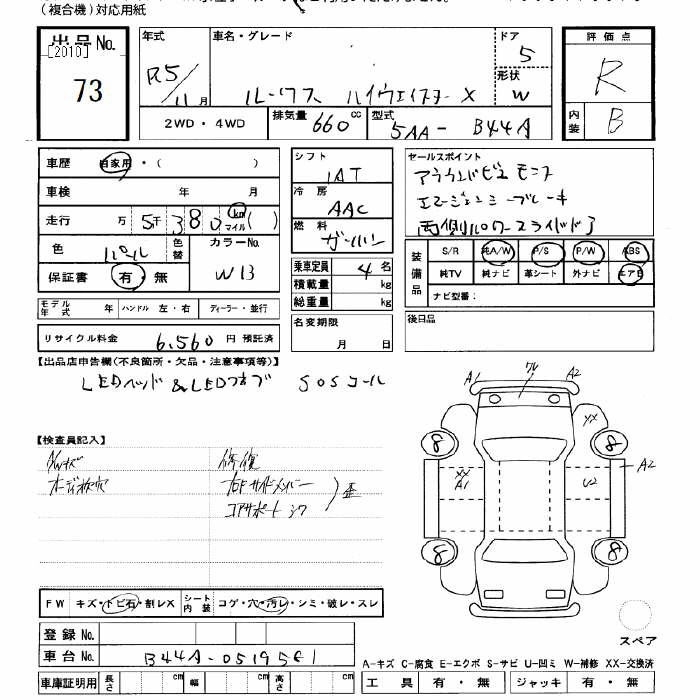 (複合機)対応用紙
出品No.
[2010]
73
年式
R5/11月
車名・グレード
ルークス ハイウェイスター X
ドア
5
形状
W
評価点
R
内装
B
2WD・4WD
排気量 660 cc
型式 5AA- B44A
車歴 自家用・( )
車検 年 月
走行 万 5千380 km マイル ( )
色 パール
色替
カラーNo. W13
保証書 有・無
モデル年式 年 ハンドル 左・右 ディーラー・並行
リサイクル料金 6,560 円 預託済
シフト
IAT
冷房
AAC
燃料
ガソリン
乗車定員 4 名
積載量 kg
総重量 kg
名変期限
月 日
セールスポイント
アラウンドビューモニター
エマージェンシーブレーキ
両側パワースライドドア
装備品
S/R 純A/W P/S P/W ABS
純TV 純ナビ 革シート 外ナビ エアB
ナビ型番:
後日品
【出品店申告欄(不良箇所・欠品・注意事項等)】
LEDヘッド&LEDフォグ SOSコール
【検査員記入】
A/Wキズ
修復
右Fサイドメンバー
コアサポート
歪
ワレ
A1
A2
XX
8
8
XX
A1
U2
A2
8
8
スペア
FW キズ・トビ石・割レX
シート内装 コゲ・穴・汚レ・シミ・破レ・スレ
登録No.
車台No. B44A-0519561
車庫証明用 長さ cm 幅 cm 高さ cm
A-キズ C-腐食 E-エクボ S-サビ U-凹ミ W-補修 XX-交換済
工具 有・無 ジャッキ 有・無